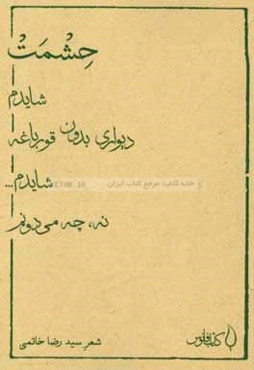 حِشْمَتْ
شایدم
دیواری بدون قورباغه
شایدم...
نه، چه می‌دونم
خانه کتاب؛ مرجع کتاب ایران
شعر سید رضا خاتمی
کتاب فانوس